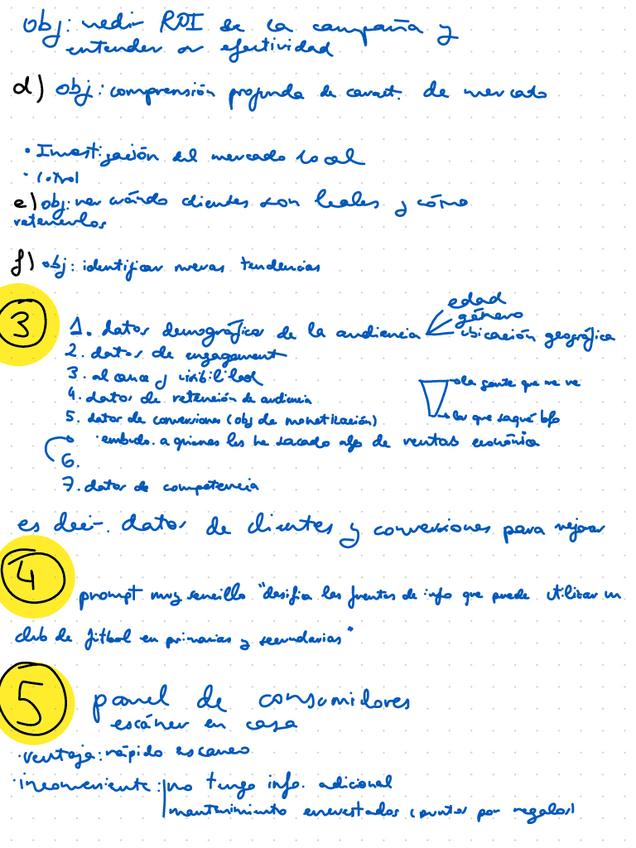 obj: medir ROI de la campaña y
entender su efectividad
d) obj: comprensión profunda de caract. de mercado
• Investigación del mercado local
•
e) obj: ver cuándo clientes son leales y cómo
retenerlos
f) obj: identificar nuevas tendencias
3
1. datos demográficos de la audiencia
edad
género
ubicación geográfica
2. datos de engagement
3. alcance y visibilidad
4. datos de retención de audiencia
la gente que me ve
5. datos de conversiones (obj de monetización)
los que saqué
· embudo. a quienes les he sacado algo de ventas económica
6.
7. datos de competencia
es decir. datos de clientes y conversiones para mejorar
4
prompt muy sencillo "las fuentes de info que puede utilizar un
club de fútbol en primarias y secundarias"
5
panel de consumidores
escáner en casa
· ventaja: rápido escaneo
· inconveniente: no tengo info. adicional
mantenimiento encuestados (puntos por regalos)